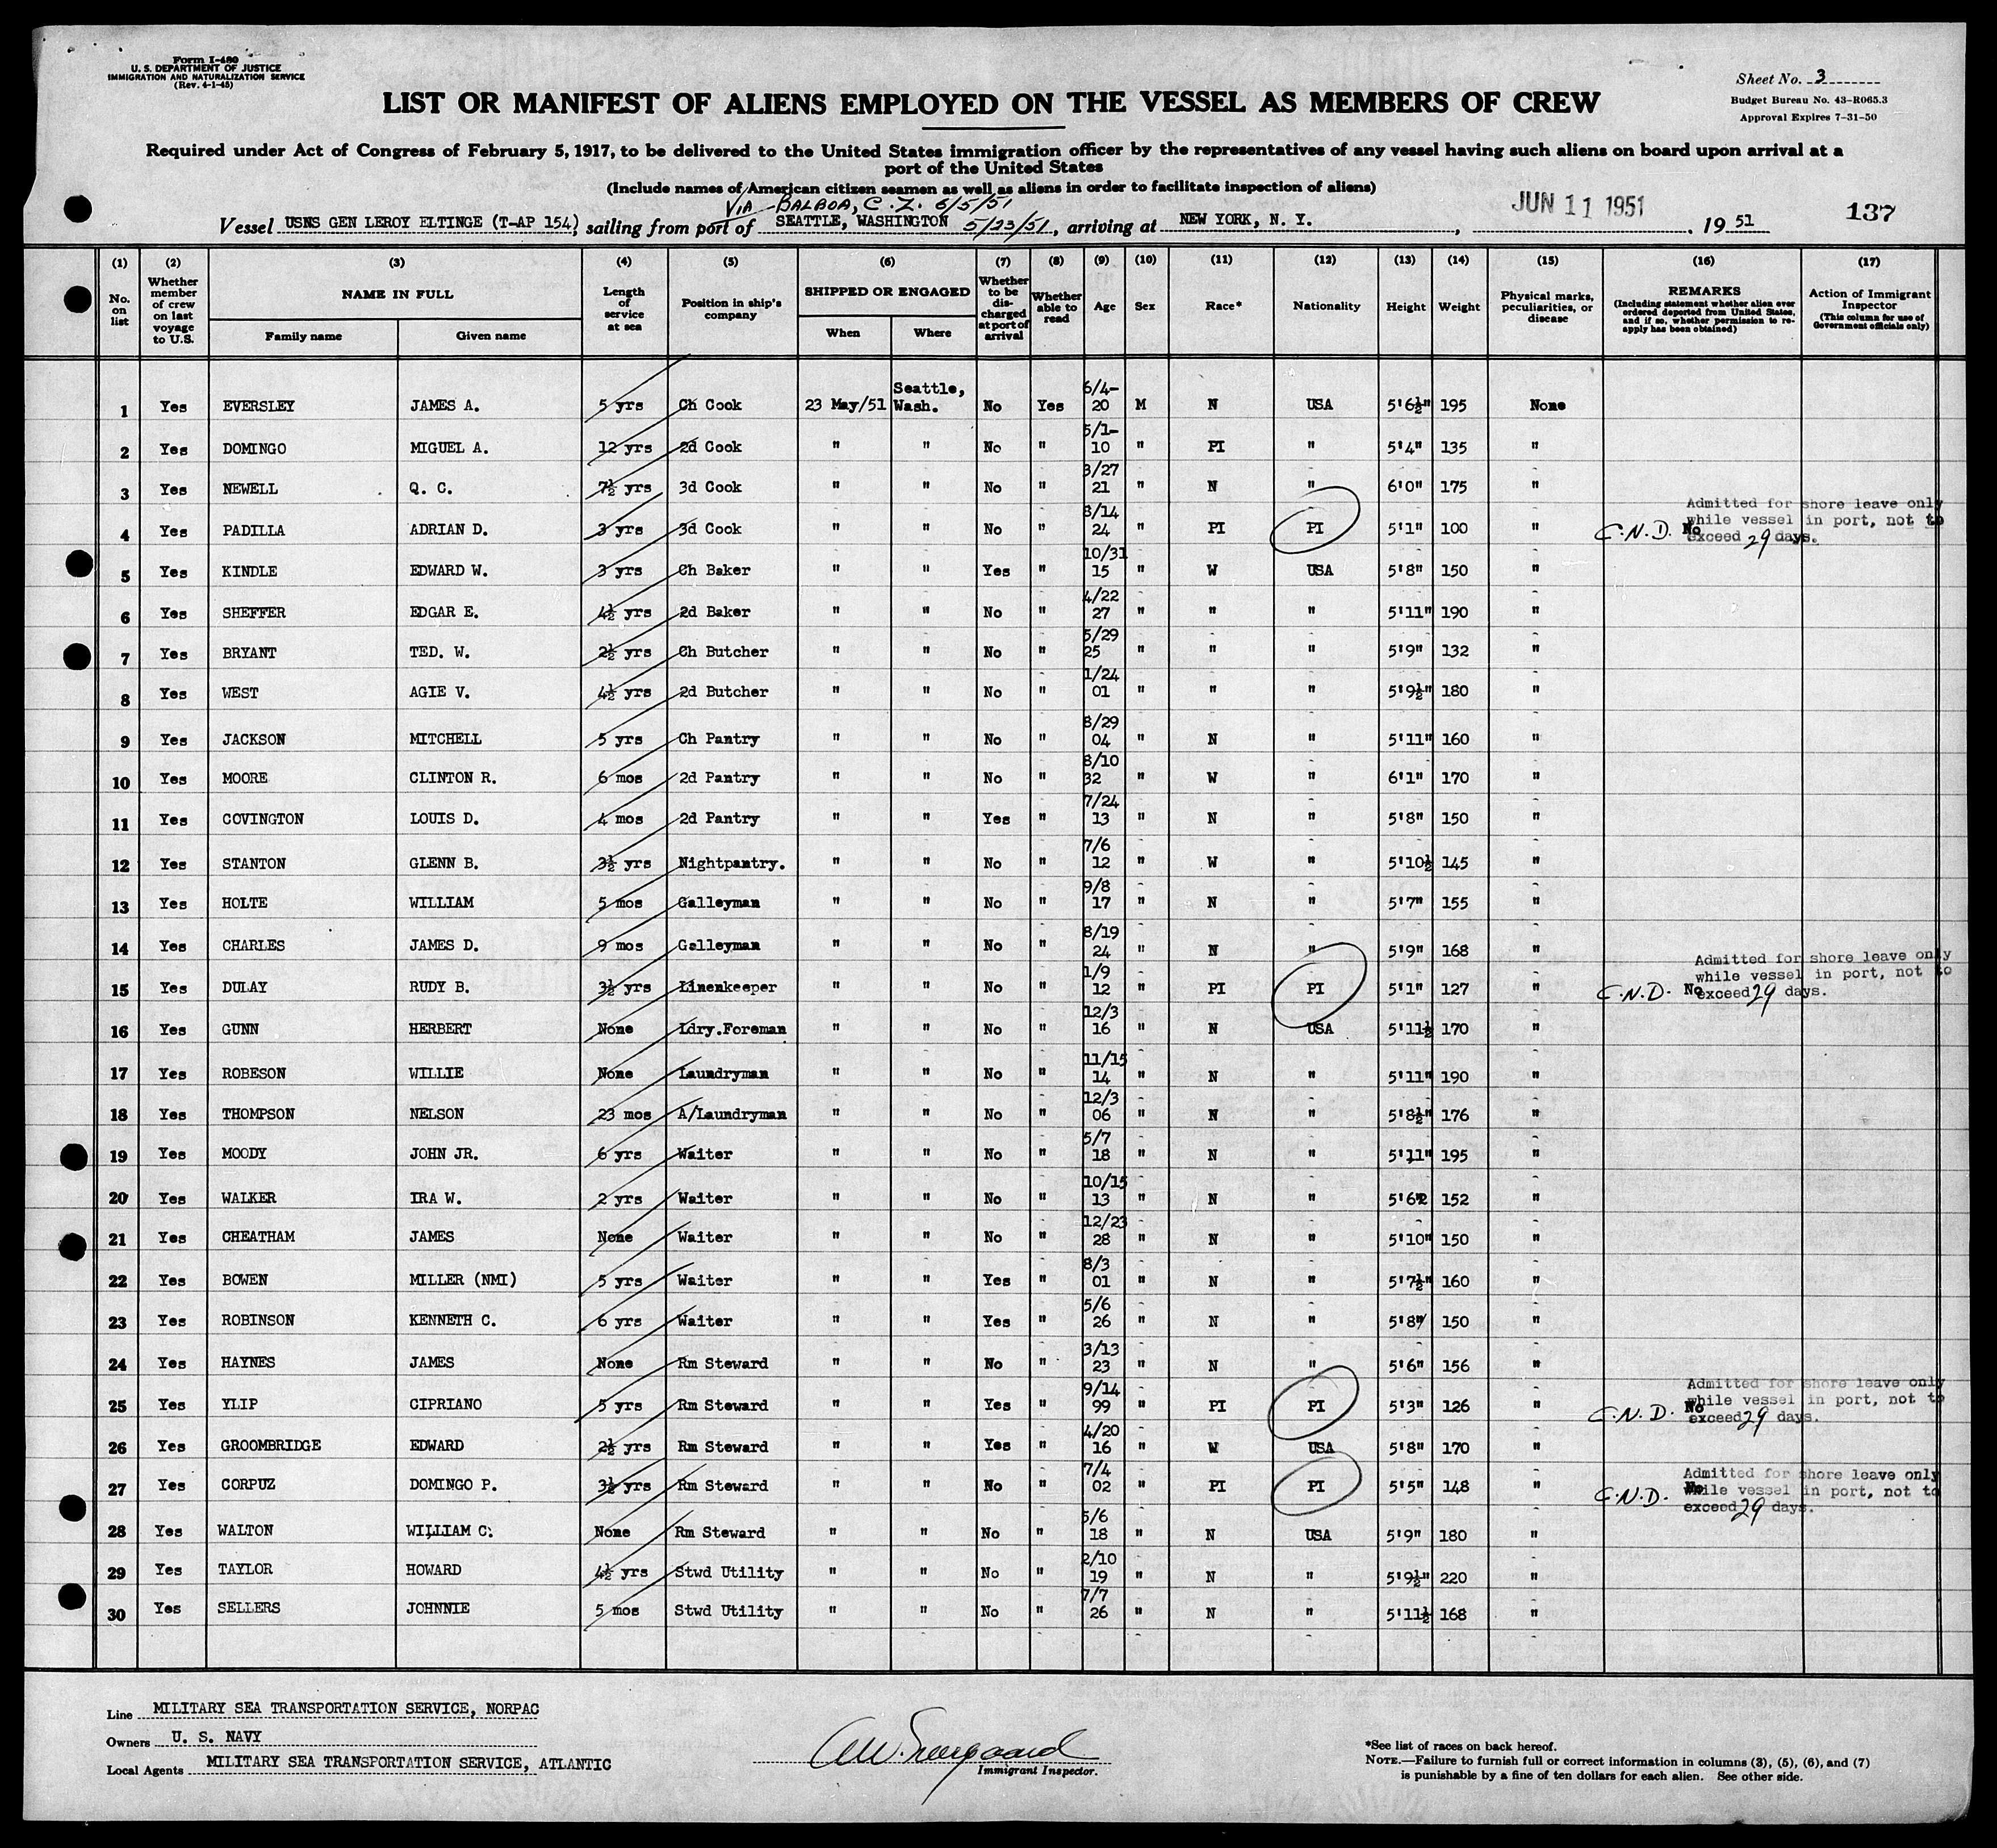 Form I-480
U. S. DEPARTMENT OF JUSTICE
IMMIGRATION AND NATURALIZATION SERVICE
(Rev. 4-1-45)
Sheet No. 3
Budget Bureau No. 43-R065.3
Approval Expires 7-31-50
LIST OR MANIFEST OF ALIENS EMPLOYED ON THE VESSEL AS MEMBERS OF CREW
Required under Act of Congress of February 5, 1917, to be delivered to the United States immigration officer by the representatives of any vessel having such aliens on board upon arrival at a
port of the United States
(Include names of American citizen seamen as well as aliens in order to facilitate inspection of aliens)
VIA - BALBOA, C. Z. 6/5/51
JUN 11 1951
137
Vessel USNS GEN LEROY ELTINGE (T-AP 154), sailing from port of SEATTLE, WASHINGTON 5/23/51, arriving at NEW YORK, N. Y. , 19 51
(1) (2) (3) (4) (5) (6) (7) (8) (9) (10) (11) (12) (13) (14) (15) (16) (17)
No. on list
Whether member of crew on last voyage to U.S.
NAME IN FULL
Family name Given name
Length of service at sea
Position in ship's company
SHIPPED OR ENGAGED
When Where
Whether to be discharged at port of arrival
Whether able to read
Age
Sex
Race*
Nationality
Height
Weight
Physical marks, peculiarities, or disease
REMARKS
(Including statement whether alien ever ordered deported from United States, and if so, whether permission to reapply has been obtained)
Action of Immigrant Inspector
(This column for use of Government officials only)
1 Yes EVERSLEY JAMES A. 5 yrs Ch Cook 23 May/51 Seattle, Wash. No Yes 6/4-20 M N USA 5'6½" 195 None
2 Yes DOMINGO MIGUEL A. 12 yrs 2d Cook " " No " 5/1-10 " PI " 5'4" 135 "
3 Yes NEWELL Q. C. 7½ yrs 3d Cook " " No " 3/27 21 " N " 6'0" 175 "
4 Yes PADILLA ADRIAN D. 3 yrs 3d Cook " " No " 8/14 24 " PI PI 5'1" 100 " C.N.D. No Admitted for shore leave only while vessel in port, not to exceed 29 days.
5 Yes KINDLE EDWARD W. 3 yrs Ch Baker " " Yes " 10/31 15 " W USA 5'8" 150 "
6 Yes SHEFFER EDGAR E. 4½ yrs 2d Baker " " No " 4/22 27 " " " 5'11" 190 "
7 Yes BRYANT TED. W. 2½ yrs Ch Butcher " " No " 5/29 25 " " " 5'9" 132 "
8 Yes WEST AGIE V. 4½ yrs 2d Butcher " " No " 1/24 01 " " " 5'9½" 180 "
9 Yes JACKSON MITCHELL 5 yrs Ch Pantry " " No " 8/29 04 " N " 5'11" 160 "
10 Yes MOORE CLINTON R. 6 mos 2d Pantry " " No " 8/10 32 " W " 6'1" 170 "
11 Yes COVINGTON LOUIS D. 4 mos 2d Pantry " " Yes " 7/24 13 " N " 5'8" 150 "
12 Yes STANTON GLENN B. 3½ yrs Nightpantry. " " No " 7/6 12 " W " 5'10½ 145 "
13 Yes HOLTE WILLIAM 5 mos Galleyman " " No " 9/8 17 " N " 5'7" 155 "
14 Yes CHARLES JAMES D. 9 mos Galleyman " " No " 8/19 24 " N " 5'9" 168 "
15 Yes DULAY RUDY B. 3½ yrs Linenkeeper " " No " 1/9 12 " PI PI 5'1" 127 " C.N.D. No Admitted for shore leave only while vessel in port, not to exceed 29 days.
16 Yes GUNN HERBERT None Ldry.Foreman " " No " 12/3 16 " N USA 5'11½ 170 "
17 Yes ROBESON WILLIE None Laundryman " " No " 11/15 14 " N " 5'11" 190 "
18 Yes THOMPSON NELSON 23 mos A/Laundryman " " No " 12/3 06 " N " 5'8½" 176 "
19 Yes MOODY JOHN JR. 6 yrs Waiter " " No " 5/7 18 " N " 5'11" 195 "
20 Yes WALKER IRA W. 2 yrs Waiter " " No " 10/15 13 " N " 5'6 152 "
21 Yes CHEATHAM JAMES None Waiter " " No " 12/23 28 " N " 5'10" 150 "
22 Yes BOWEN MILLER (NMI) 5 yrs Waiter " " Yes " 8/3 01 " N " 5'7½" 160 "
23 Yes ROBINSON KENNETH C. 6 yrs Waiter " " Yes " 5/6 26 " N " 5'8" 150 "
24 Yes HAYNES JAMES None Rm Steward " " No " 3/13 23 " N " 5'6" 156 "
25 Yes YLIP CIPRIANO 5 yrs Rm Steward " " Yes " 9/14 99 " PI PI 5'3" 126 " C.N.D. No Admitted for shore leave only while vessel in port, not to exceed 29 days.
26 Yes GROOMBRIDGE EDWARD 2½ yrs Rm Steward " " Yes " 4/20 16 " W USA 5'8" 170 "
27 Yes CORPUZ DOMINGO P. 3½ yrs Rm Steward " " No " 7/4 02 " PI PI 5'5" 148 " C.N.D. No Admitted for shore leave only while vessel in port, not to exceed 29 days.
28 Yes WALTON WILLIAM C. None Rm Steward " " No " 5/6 18 " N USA 5'9" 180 "
29 Yes TAYLOR HOWARD 4½ yrs Stwd Utility " " No " 2/10 19 " N " 5'9½" 220 "
30 Yes SELLERS JOHNNIE 5 mos Stwd Utility " " No " 7/7 26 " N " 5'11½ 168 "
Line MILITARY SEA TRANSPORTATION SERVICE, NORPAC
Owners U. S. NAVY
Local Agents MILITARY SEA TRANSPORTATION SERVICE, ATLANTIC
Immigrant Inspector.
*See list of races on back hereof.
NOTE.—Failure to furnish full or correct information in columns (3), (5), (6), and (7)
is punishable by a fine of ten dollars for each alien. See other side.